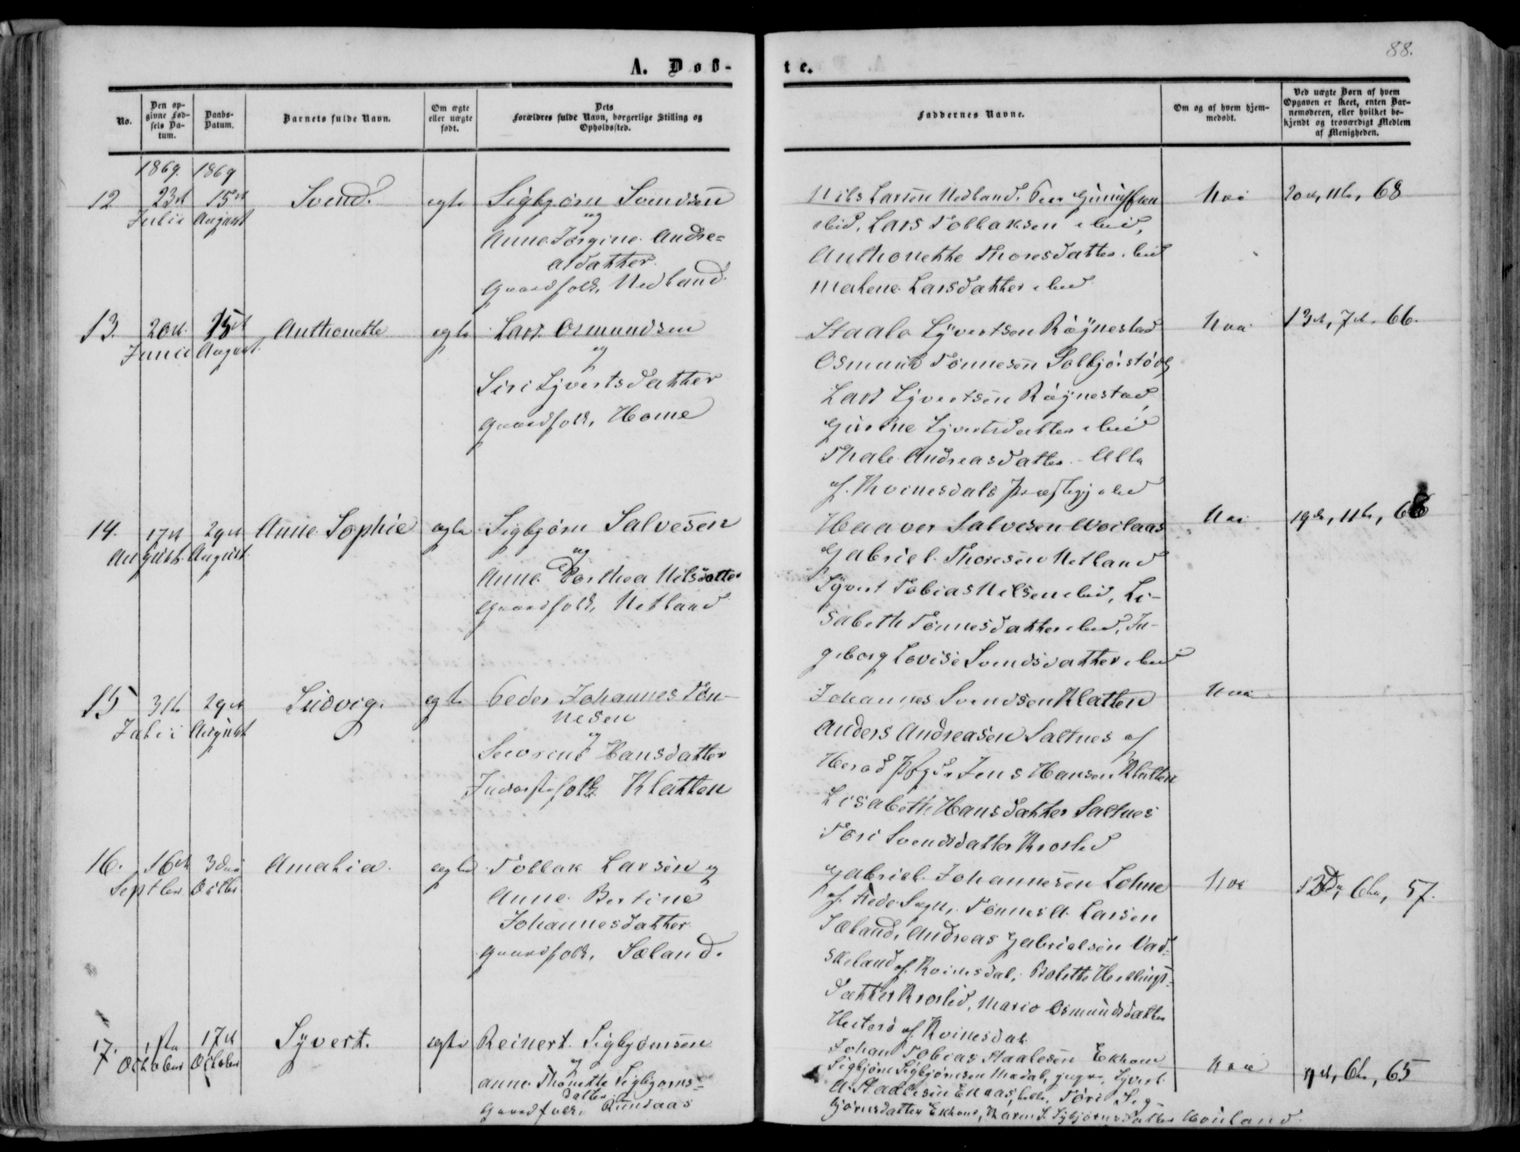 88.
A. Døb-
te.
No.
Den op-
givne Fød-
sels Da-
tum.
Daabs-
Datum.
Barnets fulde Navn.
Om ægte
eller uægte
født.
Dets
Forældres fulde Navn, borgerlige Stilling og
Opholdssted.
Faddernes Navne.
Om og af hvem hjem-
medøbt.
Ved uægte Børn af hvem
Opgaven er skeet, enten Bar-
nemoderen, eller hvilket be-
kjendt og troværdigt Medlem
af Menigheden.
1869. 1869
12
23d
Julii
15de
August
Svend.
egte
Sigbjørn Svendsen
og
Anne Jorgine Andre=
asdatter
Gaardfolk, Nedland
Nils Larsen Nedland,
ibid, Lars Tollaksen ibid,
Anthonette Thoresdatter ibid
Malene Larsdatter ibid
Nei
20d, 11te, 68
13.
20d
Junii
15d
August
Anthonette
egte
Lars Osmundsen
og
Siri Syvertsdatter
Gaardfolk, Home
Staale Syvertsen Røynestad
Osmund Tønnesen
Lars Syvertsen Røynestad
Gurine Syvertsdatter ibid
Thale Andreasdatter
af Kvinesdals Præstegj
Nei
13d, 7d, 66.
14.
17d
August
29d
August
Anne Sophie
egte
Sigbjørn Salvesen
og
Anne Dorthea Nilsdatter
Gaardfolk, Netland
Haaver Salvesen
Gabriel Thoresen Netland
Syvert Tobias Nilsen ibid, Li-
sabeth Tønnesdatter ibid, In-
geborg Lovise Svendsdatter ibid
Nei
19de, 11te, 68
15
31te
Julii
29d
August
Ludvig.
egte
Peder Johannes Tøn-
nesen
og
Severine Hansdatter
Inderstefolk Klatten
Johannes Svendsen Klatten
Anders Andreasen Saltnes af
Herad Jens Hansen Klatten
Lisabeth Hansdatter Saltnes
Tori Svendsdatter
Nei
16.
16d
Septber
3die
Octbr
Amalia.
egte
Tollak Larsen og
Anne Bertine
Johannesdatter
Gaardfolk, Sæland.
Gabriel Johannesen Lohne
af Fede Sogn, Tønnes A. Larsen
Sæland, Andreas Gabrielsen Vad-
skeland af Kvinesdal,
datter Maria Osmundsdatter
af Kvinesdal
Nei
12te, 6te, 57.
17.
1ste
October
17d
October
Syvert.
egte
Reinert Sigbjørnsen
og
Anne Thonette Sigbjørns-
datter
Gaardfolk, Rundaas
Johan Tobias Staalesen
Sigbjørn Sigbjørnsen Syvert
A. Staalesen Tori Sig-
bjørnsdatter Karen S. Sigbjørnsdatter
Nei
9d, 6te, 65